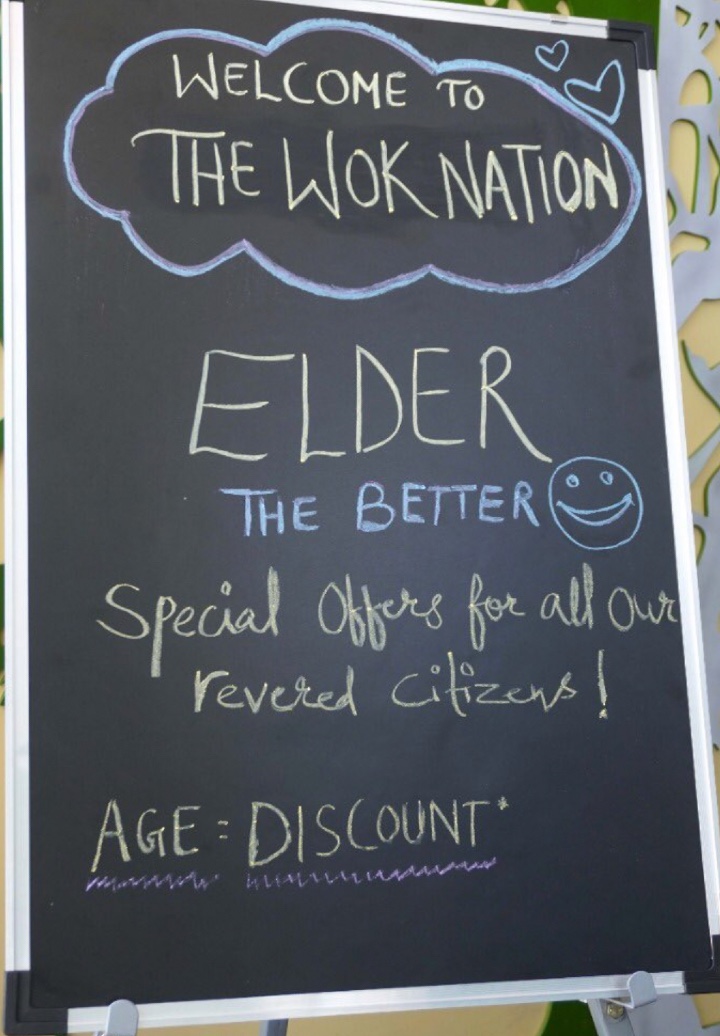 WELCOME TO
THE WOK NATION
ELDER
THE BETTER
Special Offers for all our
revered citizens!
AGE = DISCOUNT*